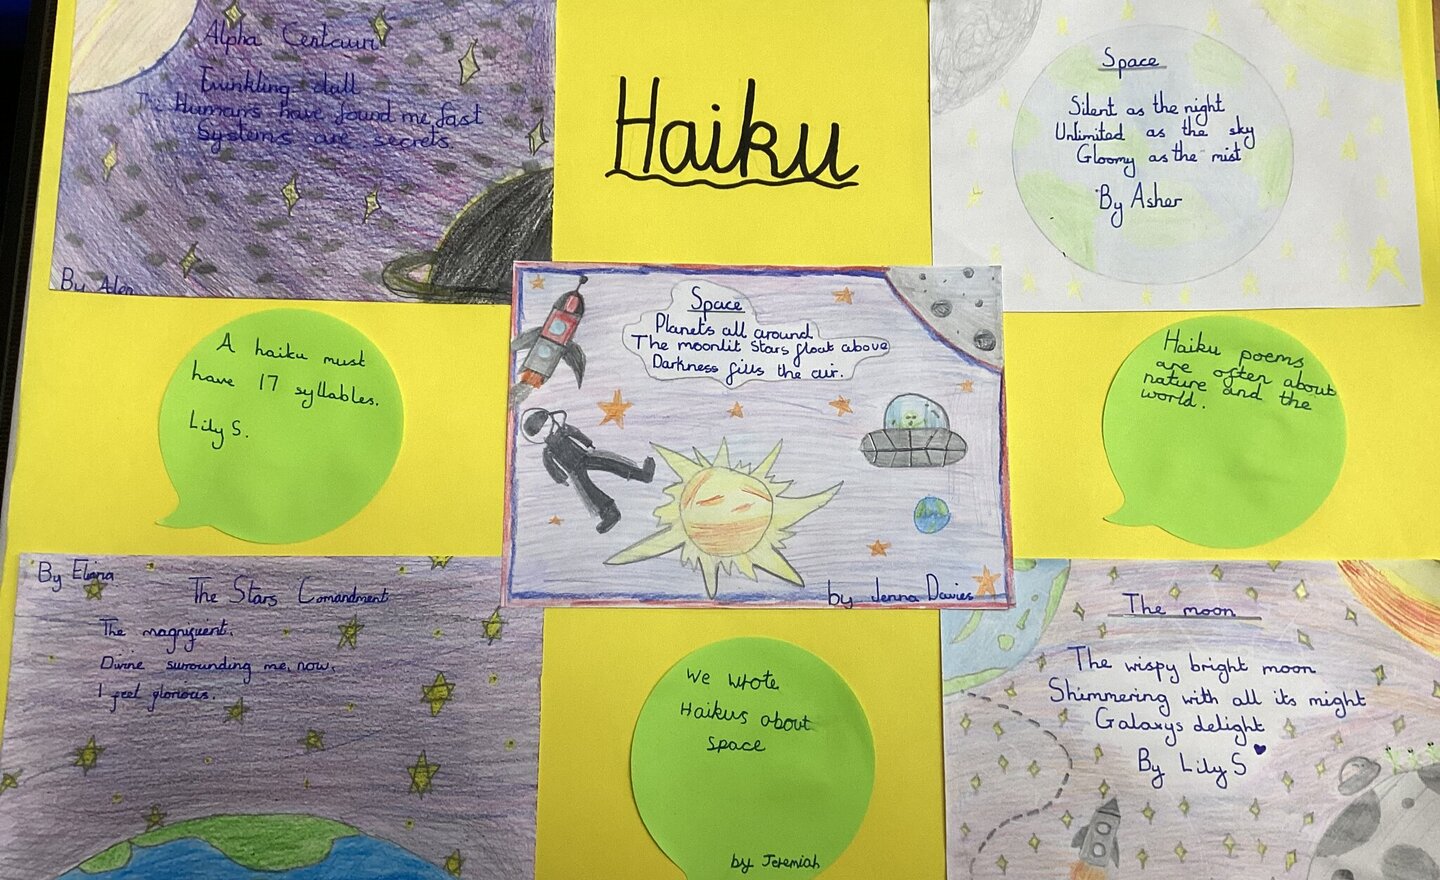 Alpha Centauri
Twinkling dull
The Humans have found me fast
Systems are secrets
By Alen
Haiku
Space
Silent as the night
Unlimited as the sky
Gloomy as the mist
By Asher
A haiku must
have 17 syllables.
Lily S.
Space
Planets all around
The moonlit Stars float above
Darkness fills the air.
by Jenna Davies
Haiku poems
are often about
nature and the
world.
By Eliana
The Stars Comandment
The magnifiuent.
Divine surrounding me, now,
I feel glorious.
We wrote
Haikus about
Space
by Jeremiah
The moon
The wispy bright moon
Shimmering with all its might
Galaxys delight
By Lily S